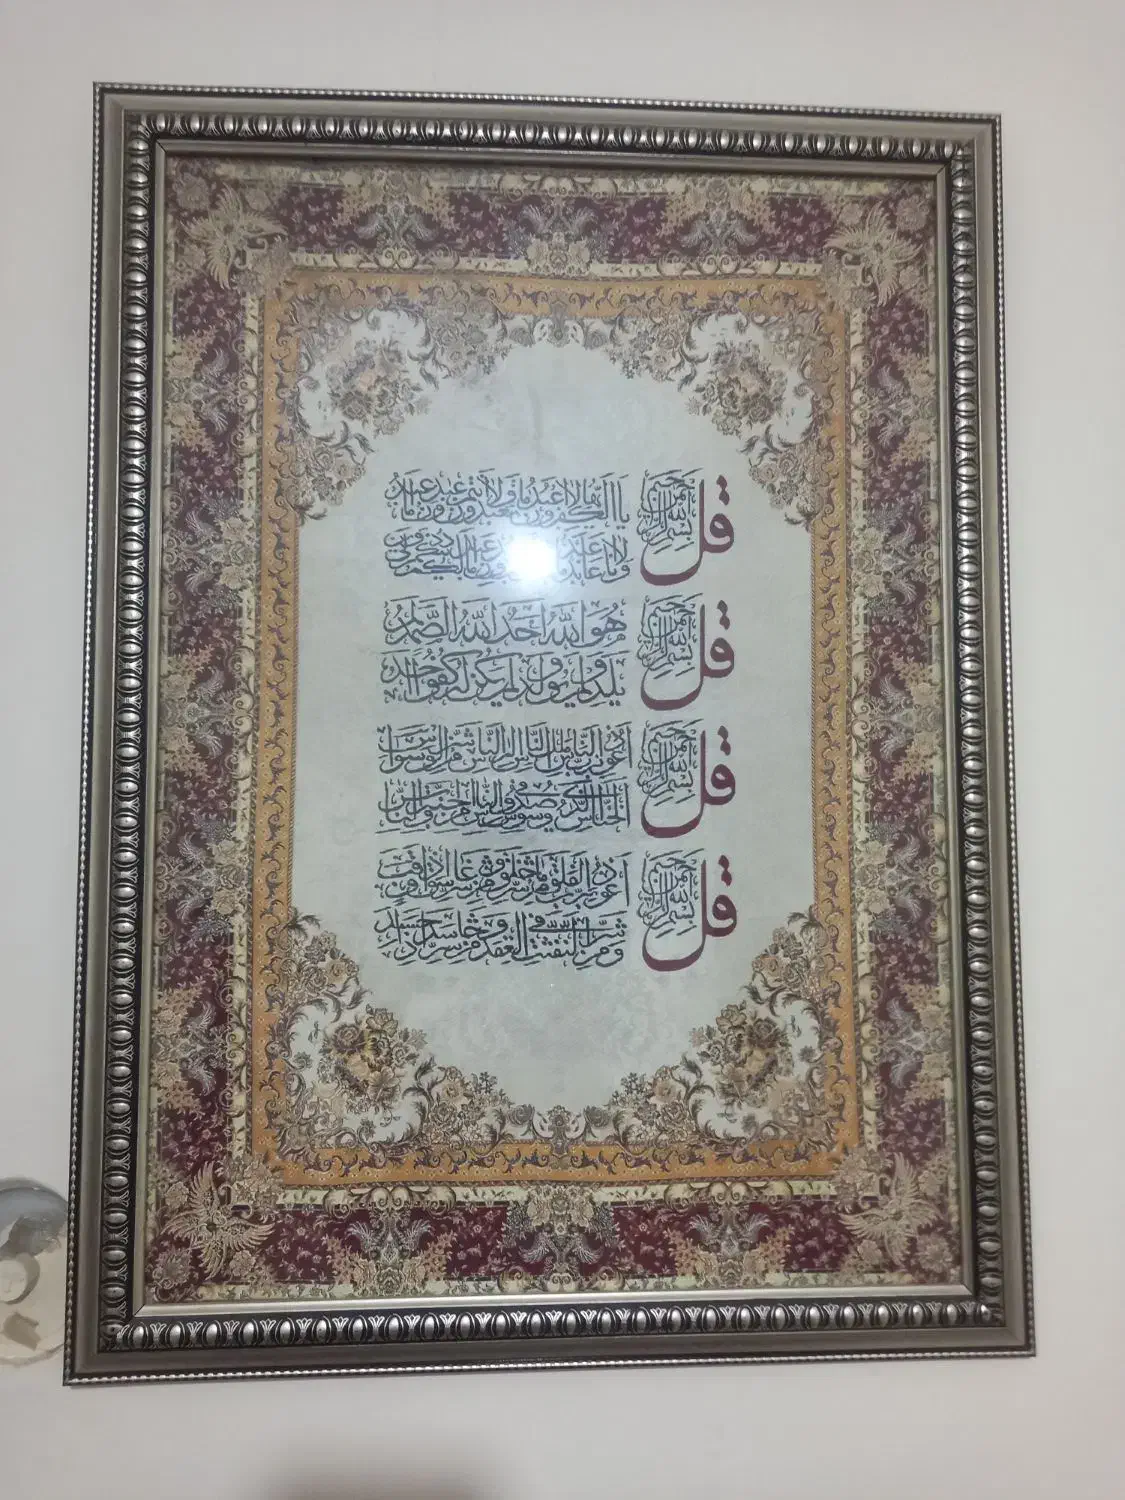 قل
بسم الله الرحمن الرحيم
يا أيها الكفرون لا أعبد ما تعبدون ولا أنتم عبدون ما أعبد
ولا أنا عابد ما لكم دينكم ولي دين
قل
بسم الله الرحمن الرحيم
هو الله أحد الله الصمد لم
يلد ولم يولد ولم يكن له كفوا أحد
قل
بسم الله الرحمن الرحيم
أعوذ برب الناس ملك الناس إله الناس من شر الوسواس
الخناس الذي يوسوس في صدور الناس من الجنة والناس
قل
بسم الله الرحمن الرحيم
أعوذ برب الفلق من شر ما خلق ومن شر غاسق إذا وقب
ومن شر النفثت في العقد ومن شر حاسد إذا حسد